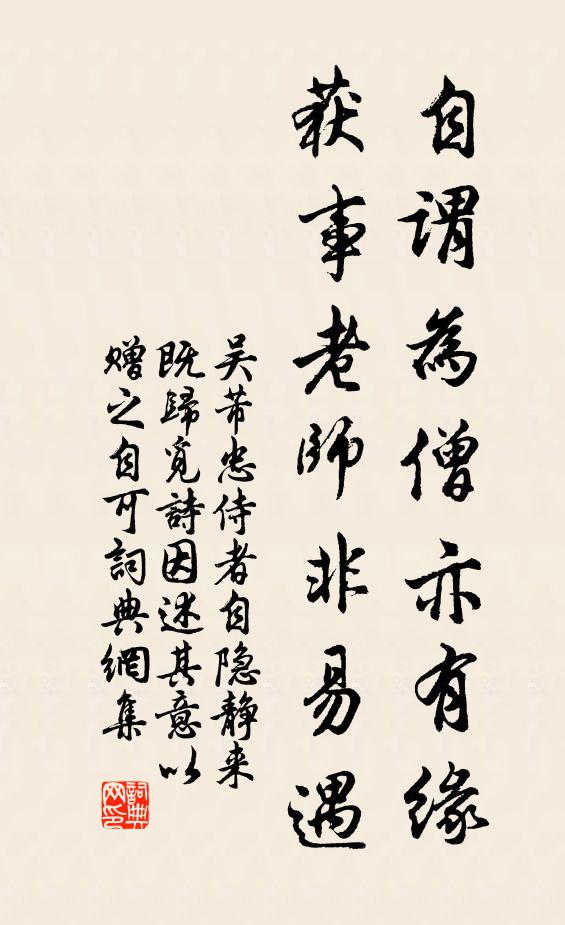 自謂為僧亦有緣
获事老師非易遇
吴芾忠侍者自隐静来
既歸覓詩因述其意以
赠之自可詞典網集
詞典网印